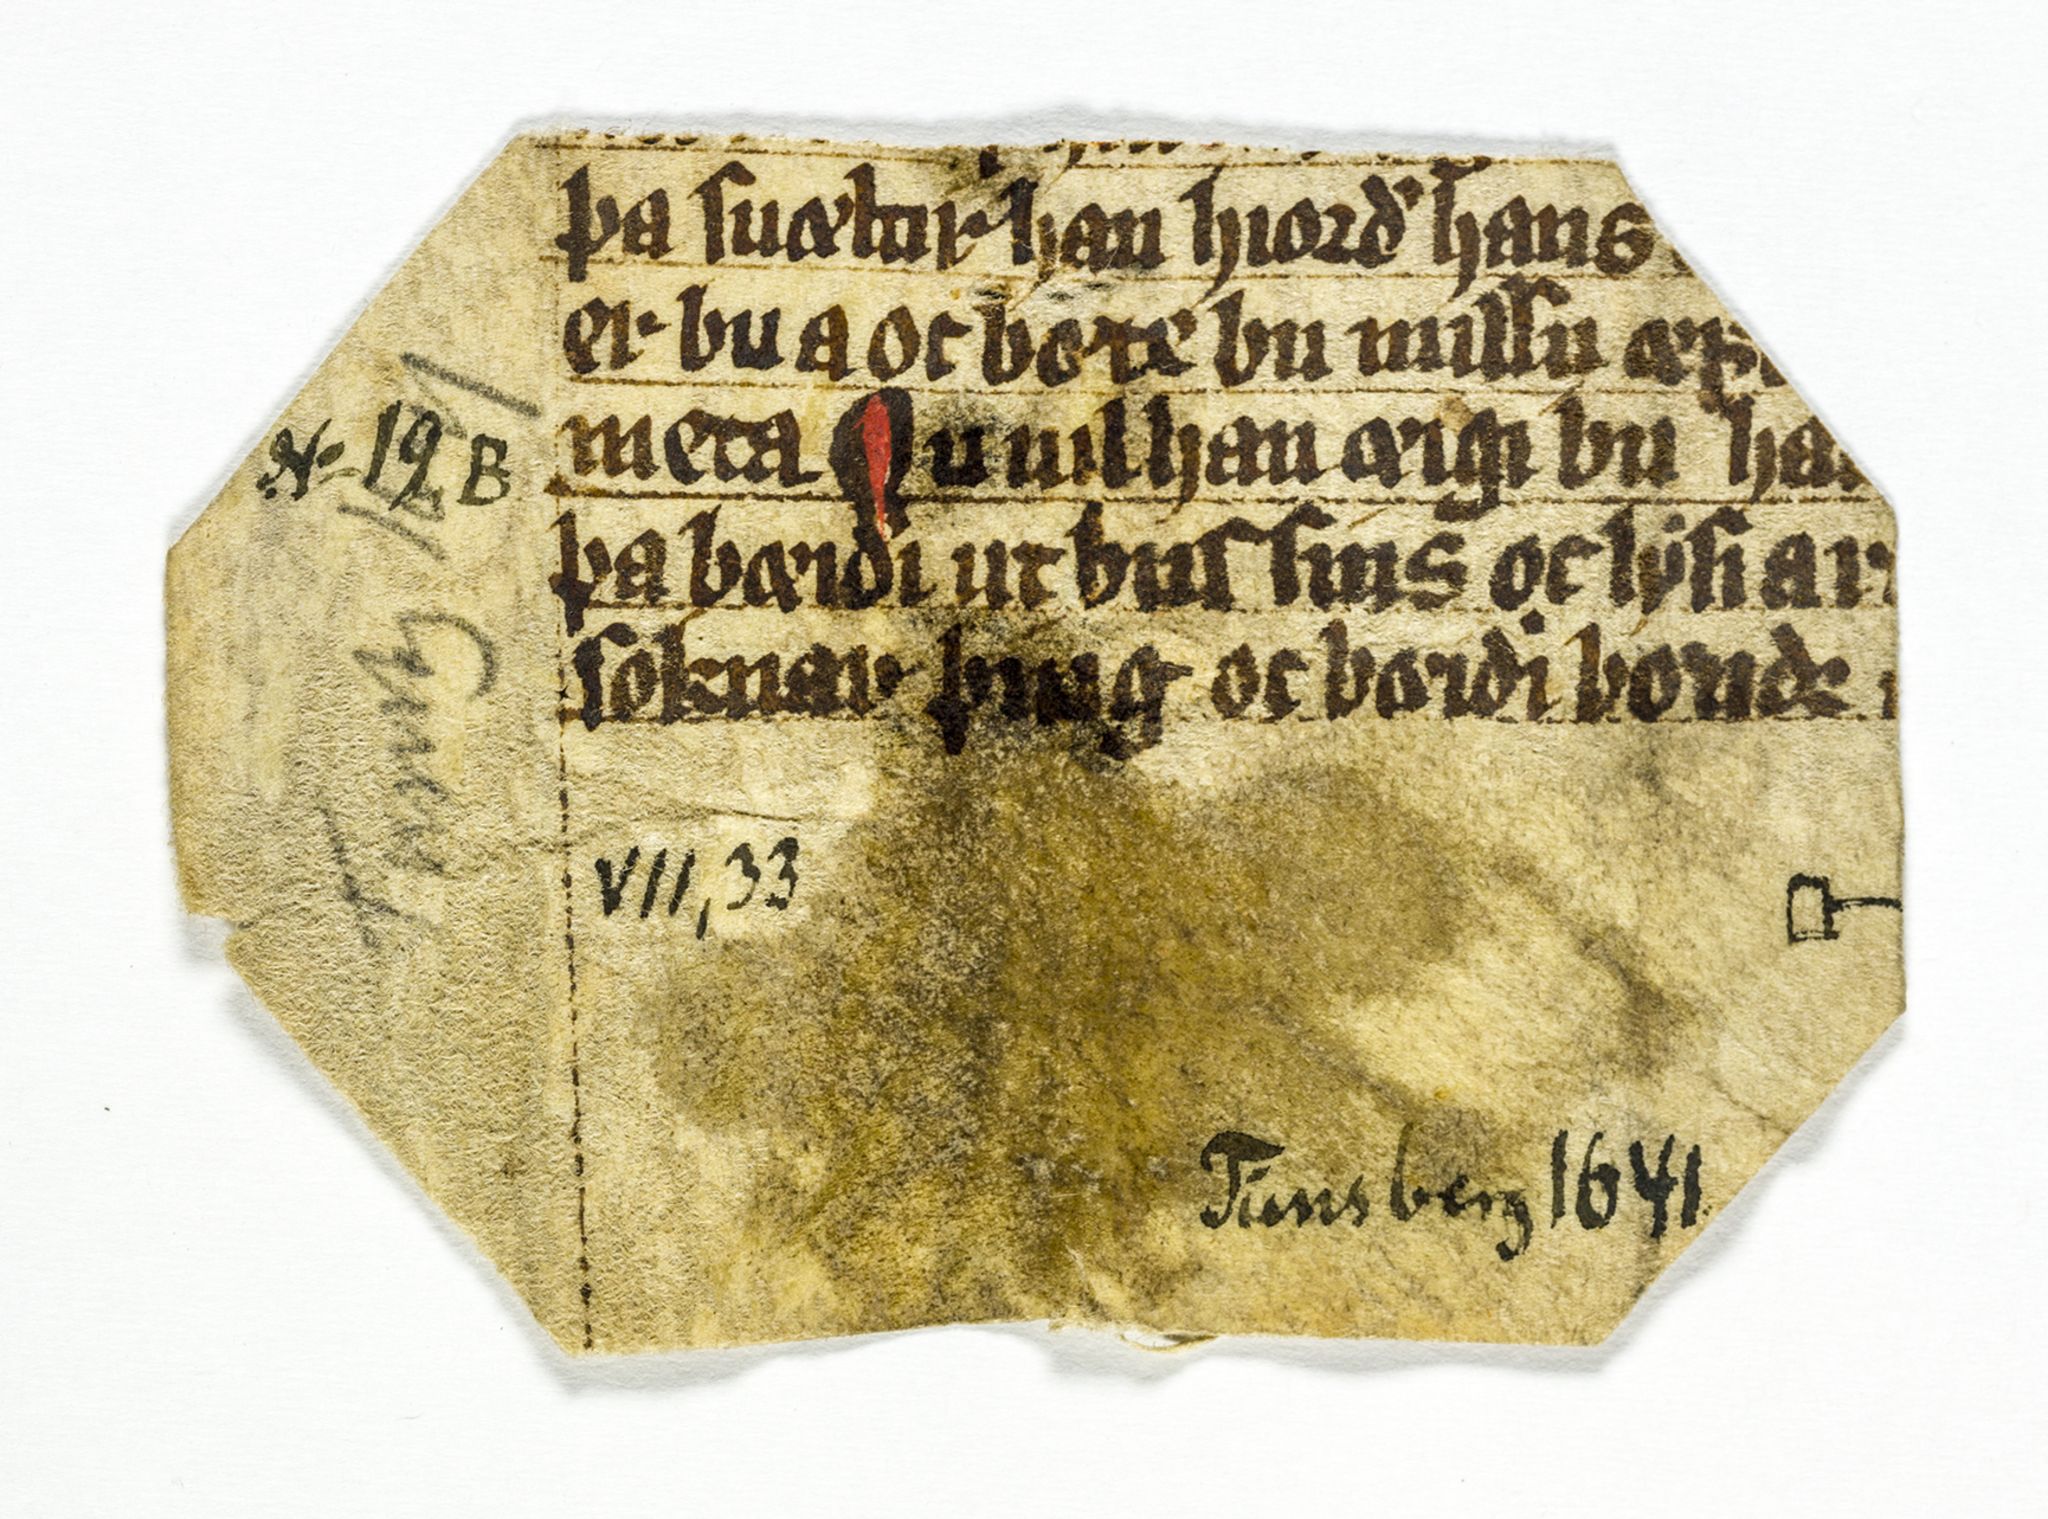 þa suæltir han hiorð hans
er bu a oc bøte bu missu æpt
meta Nu uil han æigi bu ha
þa bæiði ut bus sins oc lysi ar
soknar þing oc bæiði bonde
N. 19 B
VII, 33
Tunsberg 1641